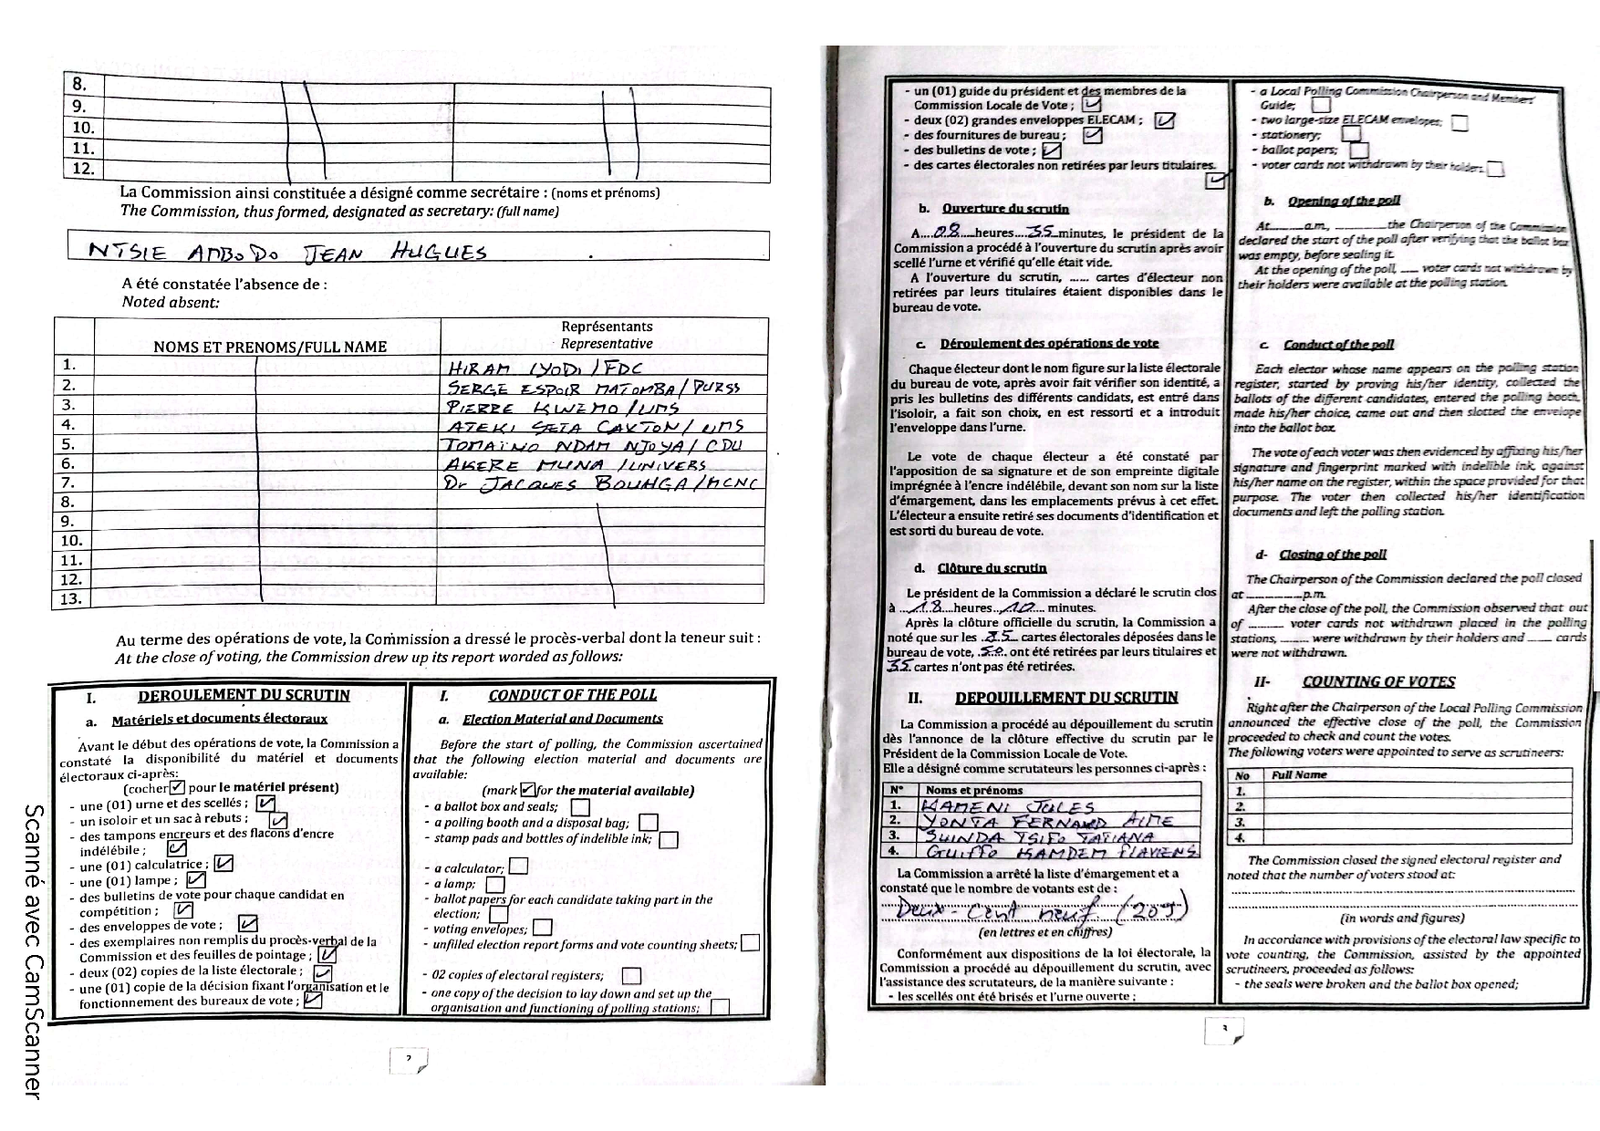 8.
9.
10.
11.
12.
La Commission ainsi constituée a désigné comme secrétaire : (noms et prénoms)
The Commission, thus formed, designated as secretary: (full name)
NTSIE AMBODO JEAN HUGUES
A été constatée l'absence de :
Noted absent:
NOMS ET PRENOMS/FULL NAME
Représentants
Representative
1. HIRAM IYODI /FDC
2. SERGE ESPOIR MATOMBA/ PURSS
3. PIERRE KWEMO /UMS
4. ATEKI SETA CAXTON/
5. TOMAINO NDAM NJOYA/ CDU
6. AKERE MUNA /UNIVERS
7. Dr JACQUES BOUHGA/MCNC
8.
9.
10.
11.
12.
13.
Au terme des opérations de vote, la Commission a dressé le procès-verbal dont la teneur suit :
At the close of voting, the Commission drew up its report worded as follows:
I. DEROULEMENT DU SCRUTIN
a. Matériels et documents électoraux
Avant le début des opérations de vote, la Commission a
constaté la disponibilité du matériel et documents
électoraux ci-après:
(cocher ☑ pour le matériel présent)
- une (01) urne et des scellés ; ☑
- un isoloir et un sac à rebuts ; ☑
- des tampons encreurs et des flacons d'encre
indélébile ; ☑
- une (01) calculatrice ; ☑
- une (01) lampe ; ☑
- des bulletins de vote pour chaque candidat en
compétition ; ☑
- des enveloppes de vote ; ☑
- des exemplaires non remplis du procès-verbal de la
Commission et des feuilles de pointage ; ☑
- deux (02) copies de la liste électorale ; ☑
- une (01) copie de la décision fixant l'organisation et le
fonctionnement des bureaux de vote ; ☑
I. CONDUCT OF THE POLL
a. Election Material and Documents
Before the start of polling, the Commission ascertained
that the following election material and documents are
available:
(mark ☑ for the material available)
- a ballot box and seals; ☐
- a polling booth and a disposal bag; ☐
- stamp pads and bottles of indelible ink; ☐
- a calculator; ☐
- a lamp; ☐
- ballot papers for each candidate taking part in the
election; ☐
- voting envelopes; ☐
- unfilled election report forms and vote counting sheets; ☐
- 02 copies of electoral registers; ☐
- one copy of the decision to lay down and set up the
organisation and functioning of polling stations; ☐
2
Scanné avec CamScanner
- un (01) guide du président et des membres de la
Commission Locale de Vote ; ☑
- deux (02) grandes enveloppes ELECAM ; ☑
- des fournitures de bureau ; ☑
- des bulletins de vote ; ☑
- des cartes électorales non retirées par leurs titulaires.
☑
b. Ouverture du scrutin
A....08....heures....35...minutes, le président de la
Commission a procédé à l'ouverture du scrutin après avoir
scellé l'urne et vérifié qu'elle était vide.
A l'ouverture du scrutin, ...... cartes d'électeur non
retirées par leurs titulaires étaient disponibles dans le
bureau de vote.
c. Déroulement des opérations de vote
Chaque électeur dont le nom figure sur la liste électorale
du bureau de vote, après avoir fait vérifier son identité, a
pris les bulletins des différents candidats, est entré dans
l'isoloir, a fait son choix, en est ressorti et a introduit
l'enveloppe dans l'urne.
Le vote de chaque électeur a été constaté par
l'apposition de sa signature et de son empreinte digitale
imprégnée à l'encre indélébile, devant son nom sur la liste
d'émargement, dans les emplacements prévus à cet effet.
L'électeur a ensuite retiré ses documents d'identification et
est sorti du bureau de vote.
d. Clôture du scrutin
Le président de la Commission a déclaré le scrutin clos
à ...18...heures...10.... minutes.
Après la clôture officielle du scrutin, la Commission a
noté que sur les cartes électorales déposées dans le
bureau de vote, ont été retirées par leurs titulaires et
35 cartes n'ont pas été retirées.
II. DEPOUILLEMENT DU SCRUTIN
La Commission a procédé au dépouillement du scrutin
dès l'annonce de la clôture effective du scrutin par le
Président de la Commission Locale de Vote.
Elle a désigné comme scrutateurs les personnes ci-après :
N° Noms et prénoms
1. KAMENI JULES
2. YONTA FERNAND AIME
3. SUINDA TSIFO TATIANA
4. GUIFFO KAMDEM FLAVIENS
La Commission a arrêté la liste d'émargement et a
constaté que le nombre de votants est de :
Deux-Cent neuf (209)
(en lettres et en chiffres)
Conformément aux dispositions de la loi électorale, la
Commission a procédé au dépouillement du scrutin, avec
l'assistance des scrutateurs, de la manière suivante :
- les scellés ont été brisés et l'urne ouverte ;
- a Local Polling Commission Chairperson and Members'
Guide; ☐
- two large-size ELECAM envelopes; ☐
- stationery; ☐
- ballot papers; ☐
- voter cards not withdrawn by their holders. ☐
b. Opening of the poll
At..........a.m, ...............the Chairperson of the Commission
declared the start of the poll after verifying that the ballot box
was empty, before sealing it.
At the opening of the poll, ..... voter cards not withdrawn by
their holders were available at the polling station.
c. Conduct of the poll
Each elector whose name appears on the polling station
register, started by proving his/her identity, collected the
ballots of the different candidates, entered the polling booth,
made his/her choice, came out and then slotted the envelope
into the ballot box.
The vote of each voter was then evidenced by affixing his/her
signature and fingerprint marked with indelible ink, against
his/her name on the register, within the space provided for that
purpose. The voter then collected his/her identification
documents and left the polling station.
d- Closing of the poll
The Chairperson of the Commission declared the poll closed
at ...............p.m.
After the close of the poll, the Commission observed that out
of .......... voter cards not withdrawn placed in the polling
stations, ........ were withdrawn by their holders and ....... cards
were not withdrawn.
II- COUNTING OF VOTES
Right after the Chairperson of the Local Polling Commission
announced the effective close of the poll, the Commission
proceeded to check and count the votes.
The following voters were appointed to serve as scrutineers:
No Full Name
1.
2.
3.
4.
The Commission closed the signed electoral register and
noted that the number of voters stood at:
(in words and figures)
In accordance with provisions of the electoral law specific to
vote counting, the Commission, assisted by the appointed
scrutineers, proceeded as follows:
- the seals were broken and the ballot box opened;
3